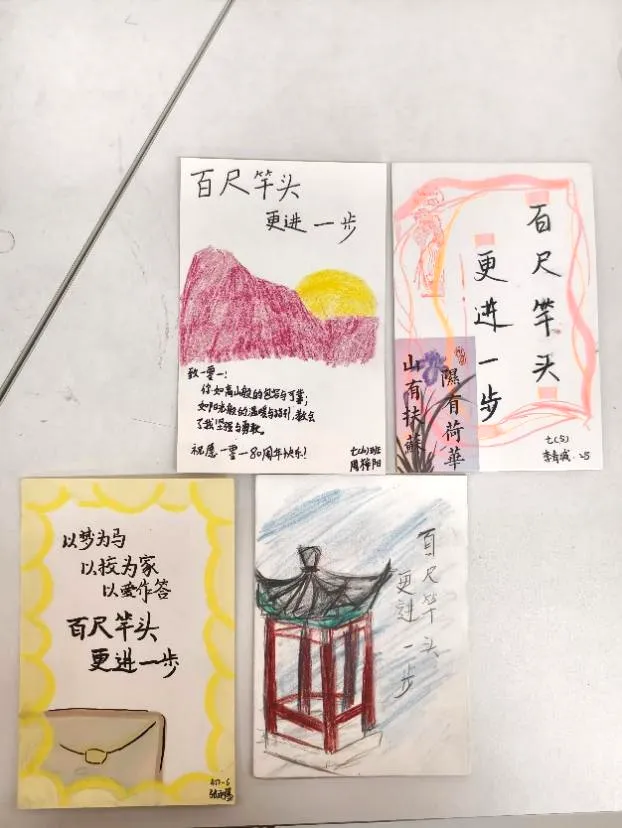 百尺竿头
更进一步
致一重一:
你如高山般的包容与可靠;
如阳光般的温暖与指引,教会
了我坚强与勇敢。
祝愿一重一80周年快乐!
七(6)班
百尺竿头
更进一步
山有扶蘇
隰有荷華
以梦为马
以校为家
以爱作答
百尺竿头
更进一步
百尺竿头
更进一步